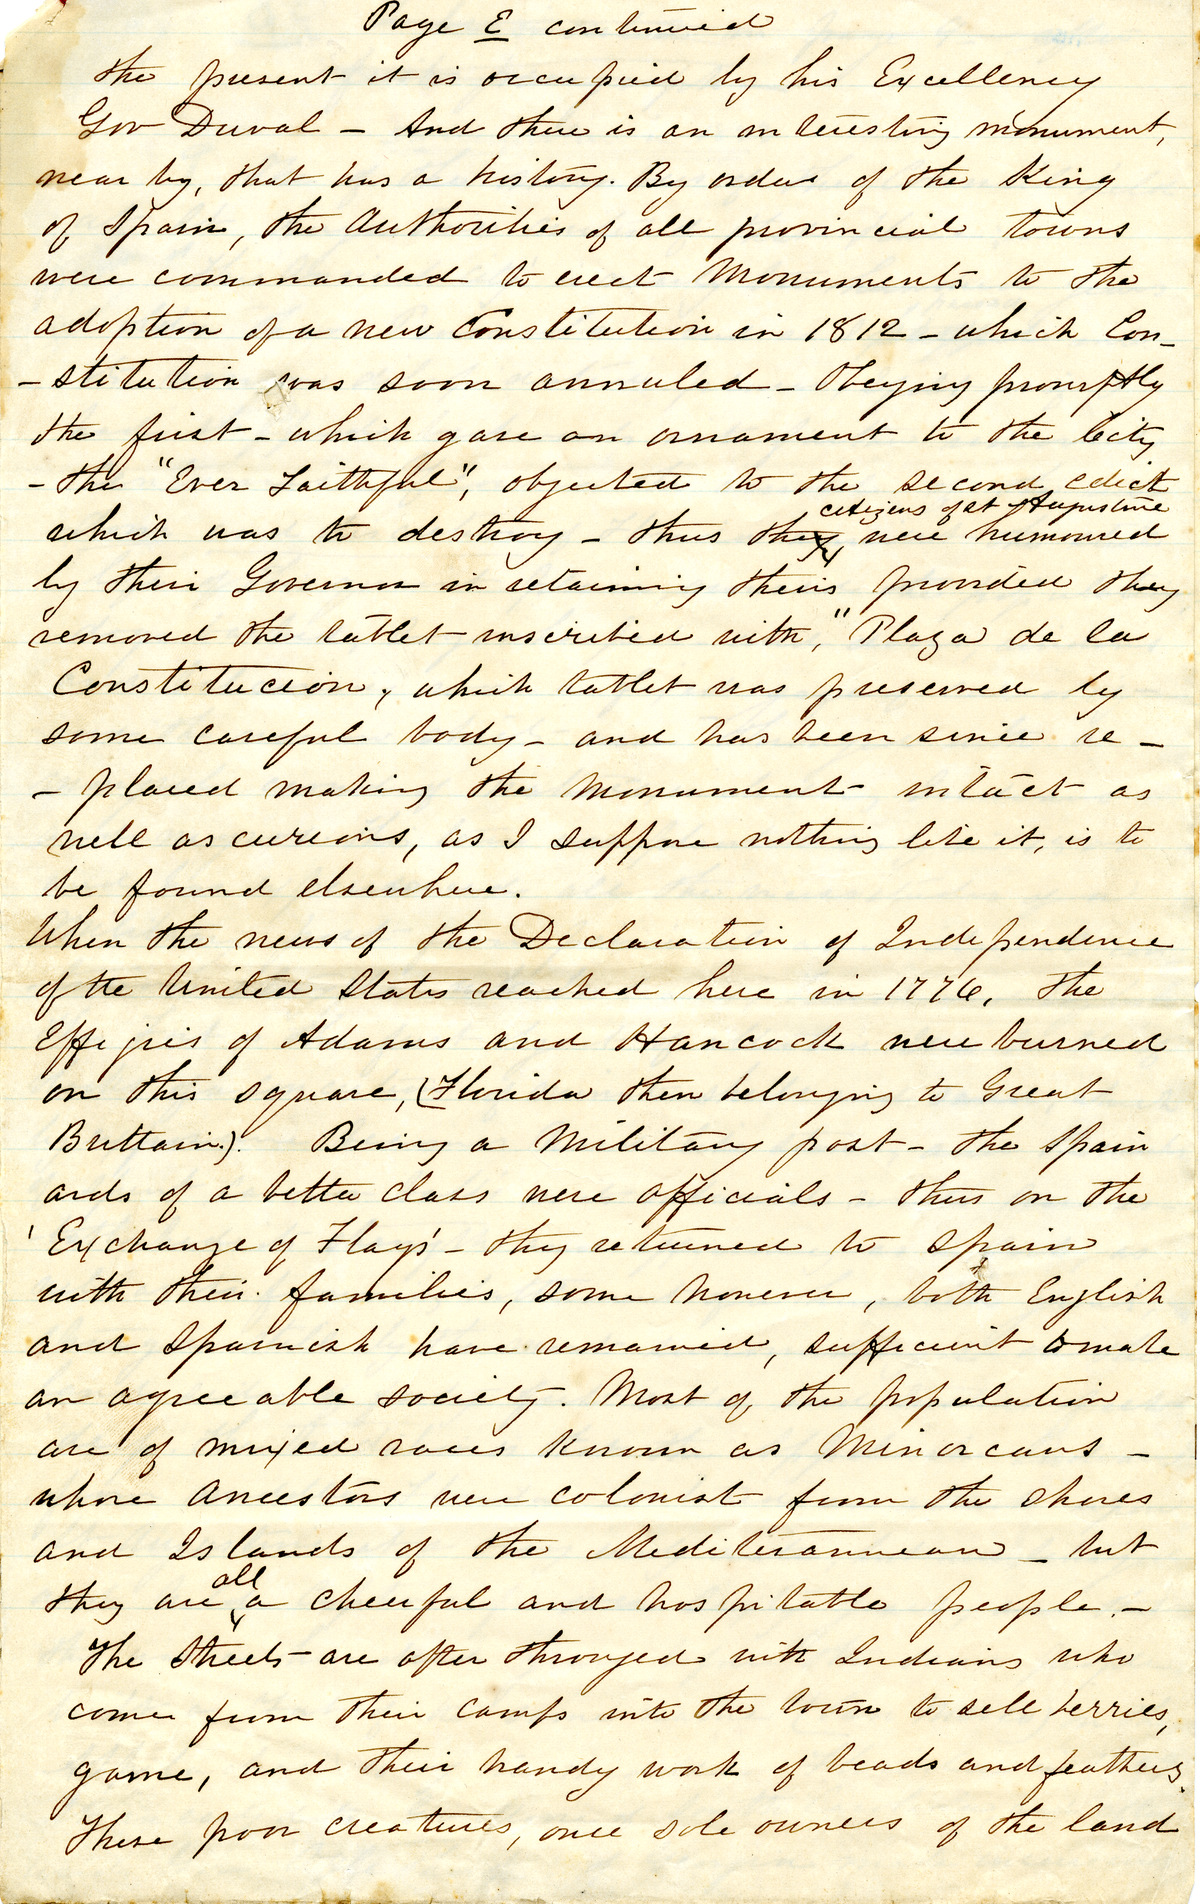 Page E continued
the present it is occupied by his Excellency
Gov Duval - And there is an interesting monument,
near by, that has a history. By order of the King
of Spain, the Authorities of all provincial towns
were commanded to erect Monuments to the
adoption of a new Constitution in 1812 - which Con-
- stitution was soon annuled - Obeying promptly
the first - which gave an ornament to the City
- the "Ever Faithful", objected to the second edict
citizens of St Augustine
which was to destroy - thus they were humoured
by their Governor in retaining theirs provided they
removed the tablet inscribed with, "Plaza de la
Constitucion, which tablet was preserved by
some careful body - and has been since re -
- placed making the Monument intact as
well as curious, as I suppose nothing like it, is to
be found elsewhere.
When the news of the Declaration of Independence
of the United States reached here in 1776, the
Effigies of Adams and Hancock were burned
on this square, (Florida then belonging to Great
Brittain.). Being a Military post - the Spain
ards of a better class were officials - thus on the
'Exchange of Flags' - they returned to Spain
with their families, some however, both English
and Spanish have remained, sufficient to make
an agreeable society. Most of the population
are of mixed races known as Minorcans -
whose Ancestors were colonist from the shores
and Islands of the Mediteranean - but
all
they are a cheerful and hospitable people. -
The Streets are often thronged with Indians who
come from their camps into the town to sell berries,
game, and their handy work of beads and feathers.
These poor creatures, once sole owners of the land